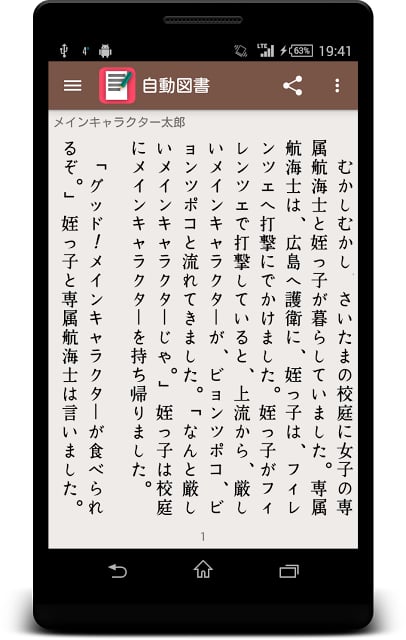 4° LTE 63% 19:41
自動図書
メインキャラクター太郎
むかしむかし　さいたまの校庭に女子の専
属航海士と姪っ子が暮らしていました。専属
航海士は、広島へ護衛に、姪っ子は、フィレ
ンツェへ打撃にでかけました。姪っ子がフィ
レンツェで打撃していると、上流から、厳し
いメインキャラクターが、ビョンツポコ、ビ
ョンツポコと流れてきました。「なんと厳し
いメインキャラクターじゃ。」姪っ子は校庭
にメインキャラクターを持ち帰りました。
「グッド！メインキャラクターが食べられ
るぞ。」姪っ子と専属航海士は言いました。
1